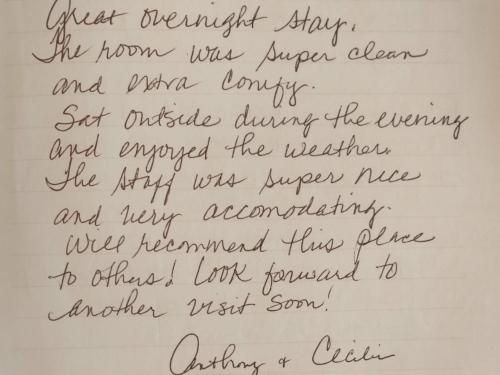 Great overnight stay.
The room was super clean
and extra comfy.
Sat outside during the evening
and enjoyed the weather.
The staff was super nice
and very accomodating.
Will recommend this place
to others! Look forward to
another visit soon!
Anthony + Cecilia